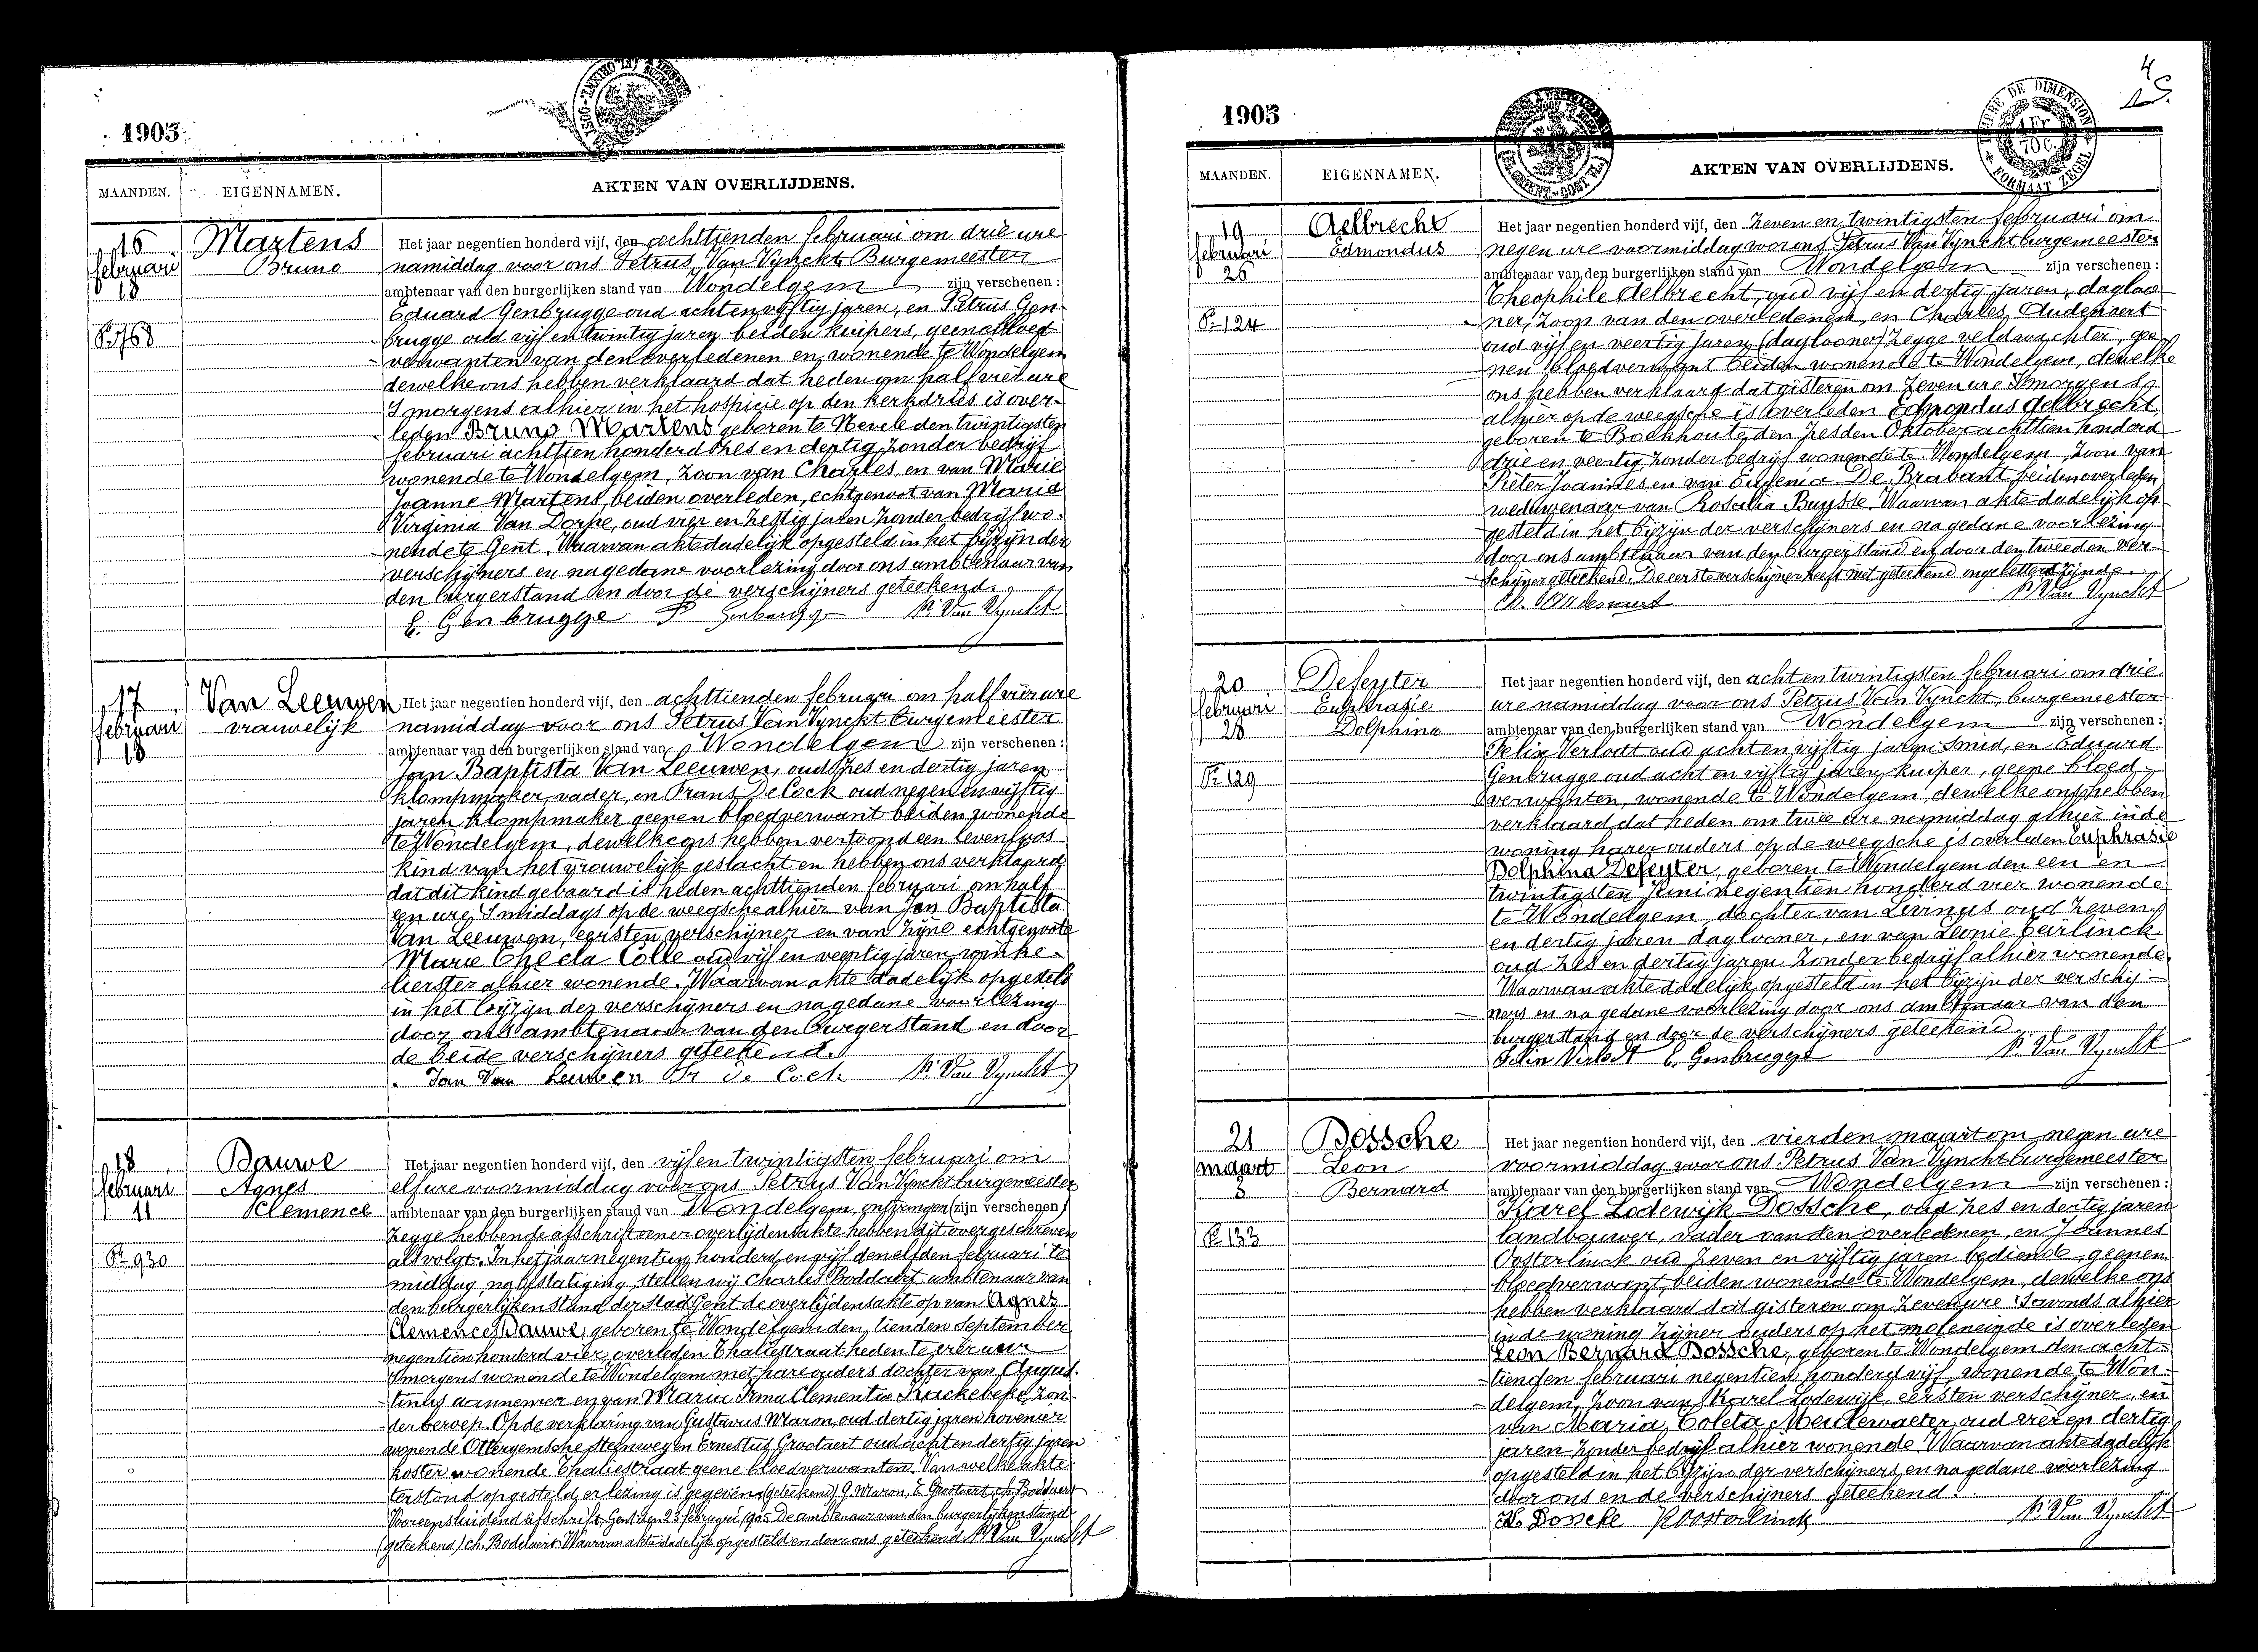 1905
MAANDEN. EIGENNAMEN. AKTEN VAN OVERLIJDENS.
16
februari
18
Pr 768
Martens
Bruno
Het jaar negentien honderd vijf, den achttienden februari om drie ure
namiddag voor ons Petrus Van Vynckt Burgemeester
ambtenaar van den burgerlijken stand van Wondelgem zijn verschenen :
Eduard Genbrugge oud acht en vijftig jaren, en Petrus Gen-
brugge oud vijf en twintig jaren beiden kuipers, geen bloed
verwanten van den overledenen en wonende te Wondelgem
dewelke ons hebben verklaard dat heden om half vier ure
'Smorgens alhier in het hospicie op den kerkdries is over-
leden Bruno Martens geboren te Nevele den twintigsten
februari achttien honderd zes en dertig zonder bedrijf
wonende te Wondelgem, zoon van Charles en van Marie
Joanne Martens, beiden overleden, echtgenoot van Maria
Virginia Van Dorpe, oud vier en zestig jaren zonder bedrijf wo-
nende te Gent. Waarvan akte dadelijk opgesteld in het bijzijn der
verschijners en na gedane voorlezing door ons ambtenaar van
den burgerstand en door de verschijners geteekend.
E. Genbrugge P Genbrugge P. Van Vynckt
17
februari
18
Van Leeuwen
vrauwelijk
Het jaar negentien honderd vijf, den achttienden februari om half vier ure
namiddag voor ons Petrus Van Vynckt burgemeester
ambtenaar van den burgerlijken stand van Wondelgem zijn verschenen :
Jan Baptista Van Leeuwen, oud zes en dertig jaren
klompmaker, vader, en Frans De Cock oud negen en vijftig
jaren klompmaker geenen bloedverwant beiden wonende
te Wondelgem, dewelke ons hebben vertoond een levenloos
kind van het vrouwelijk geslacht en hebben ons verklaard
dat dit kind gebaard is heden achttienden februari om half
een ure 'Smiddags op de weegsche alhier van Jan Baptista
Van Leeuwen, eersten verschijner en van zijne echtgenoote
Marie Thecla Colle oud vijf en veertig jaren winke-
lierster alhier wonende. Waarvan akte dadelijk opgesteld
in het bijzijn der verschijners en na gedane voorlezing
door ons ambtenaar van den Burgerstand en door
de beide verschijners geteekend.
Jan Van Leuwen Fr De Cock P. Van Vynckt
18
februari
11
Pr 930
Dauwe
Agnes
Klemence
Het jaar negentien honderd vijf, den vijf en twintigsten februari om
elf ure voormiddag voor ons Petrus Van Vynckt burgemeester
ambtenaar van den burgerlijken stand van Wondelgem, ontvangen (zijn verschenen)
zegge hebbende afschrift eener overlijdensakte hebben dit overgeschreven
als volgt. In het jaar negentien honderd en vijf den elfden februari te
middag, na bestatiging, stellen wij Charles Boddaert ambtenaar van
den burgerlijken stand der stad Gent de overlijdensakte op van Agnes
Clemence Dauwe, geboren te Wondelgem den tienden September
negentien honderd vier, overleden Thaliestraat heden te vier uur
'Smorgens wonende te Wondelgem met hare ouders dochter van Augus-
tinus aannemer en van Maria Irma Clementia Krackebeke, zon-
der beroep. Op de verklaring van Gustavus Maron, oud dertig jaren hovenier
wonende Ottergemsche steenweg en Ernestus Grootaert oud acht en dertig jaren
koster wonende Thaliestraat geene bloedverwanten. Van welke akte
terstond opgesteld, er lezing is gegeven (geteekend) G. Maron, E. Grootaert, Ch. Boddaert
Voor eensluidend afschrift, Gent den 23 februari 1905 De ambtenaar van den burgerlijken stand
(geteekend) Ch. Boddaert. Waarvan akte dadelijk opgesteld en door ons geteekend P. Van Vynckt
4
1905
MAANDEN. EIGENNAMEN. AKTEN VAN OVERLIJDENS.
TIMBRE DE DIMENSION
1 Fr
70 C.
FORMAAT ZEGEL
19
februari
26
Pr 124
Aelbrecht
Edmondus
Het jaar negentien honderd vijf, den zeven en twintigsten februari om
negen ure voormiddag voor ons Petrus Van Vynckt burgemeester
ambtenaar van den burgerlijken stand van Wondelgem zijn verschenen :
Theophile Aelbrecht, oud vijf en dertig jaren, dagloo-
ner, zoon van den overledenen, en Charles Audenaert
oud vijf en veertig jaren (daglooner) zegge veldwachter, gee-
nen bloedverwant beiden wonende te Wondelgem, dewelke
ons hebben verklaard dat gisteren om zeven ure 'Smorgens
alhier op de weegsche is overleden Edmondus Aelbrecht,
geboren te Boekhoute den zesden Oktober achttien honderd
drie en veertig zonder bedrijf wonende te Wondelgem, zoon van
Pieter Joannes en van Eugenia De Brabant beiden overleden,
weduwenaar van Rosalia Buysse. Waarvan akte dadelijk op-
gesteld in het bijzijn der verschijners en na gedane voorlezing
door ons ambtenaar van den burgerstand en door den tweeden ver-
schijner geteekend. De eerste verschijner heeft niet geteekend ongeletterd zijnde.
Ch. Audenaert P. Van Vynckt
20
februari
28
Pr 129
Defeyter
Euphrasie
Dolphina
Het jaar negentien honderd vijf, den acht en twintigsten februari om drie
ure namiddag voor ons Petrus Van Vynckt, burgemeester
ambtenaar van den burgerlijken stand van Wondelgem zijn verschenen :
Felix Verlodt oud acht en vijftig jaren Smid, en Eduard
Genbrugge oud acht en vijftig jaren kuiper, geene bloed-
verwanten, wonende te Wondelgem, dewelke ons hebben
verklaard dat heden om twee ure namiddag alhier in de
woning harer ouders op de weegsche is overleden Euphrasie
Dolphina Defeyter, geboren te Wondelgem den een en
twintigsten Juni negentien honderd vier wonende
te Wondelgem, dochter van Livinus oud zeven
en dertig jaren daglooner, en van Leonie Geirlinck
oud zes en dertig jaren zonder bedrijf alhier wonende.
Waarvan akte dadelijk opgesteld in het bijzijn der verschij-
ners en na gedane voorlezing door ons ambtenaar van den
burgerstand en door de verschijners geteekend
Felix Verlodt E. Genbrugge P. Van Vynckt
21
maart
3
Pr 133
Dossche
Leon
Bernard
Het jaar negentien honderd vijf, den vierden maart om negen ure
voormiddag voor ons Petrus Van Vynckt burgemeester
ambtenaar van den burgerlijken stand van Wondelgem zijn verschenen :
Karel Lodewijk Dossche, oud zes en dertig jaren
landbouwer, vader van den overledenen, en Joannes
Oosterlinck oud zeven en vijftig jaren bediende, geenen
bloedverwant, beiden wonende te Wondelgem, dewelke ons
hebben verklaard dat gisteren om zeven ure 'Savonds alhier
in de woning zijner ouders op het moleneinde is overleden
Leon Bernard Dossche, geboren te Wondelgem den acht-
tienden februari negentien honderd vijf, wonende te Won-
delgem, zoon van Karel Lodewijk eersten verschijner, en
van Maria Coleta Meulewaeter oud vier en dertig
jaren zonder bedrijf alhier wonende. Waarvan akte dadelijk
opgesteld in het bijzijn der verschijners en na gedane voorlezing
door ons en de verschijners geteekend.
K. Dossche Oosterlinck P. Van Vynckt